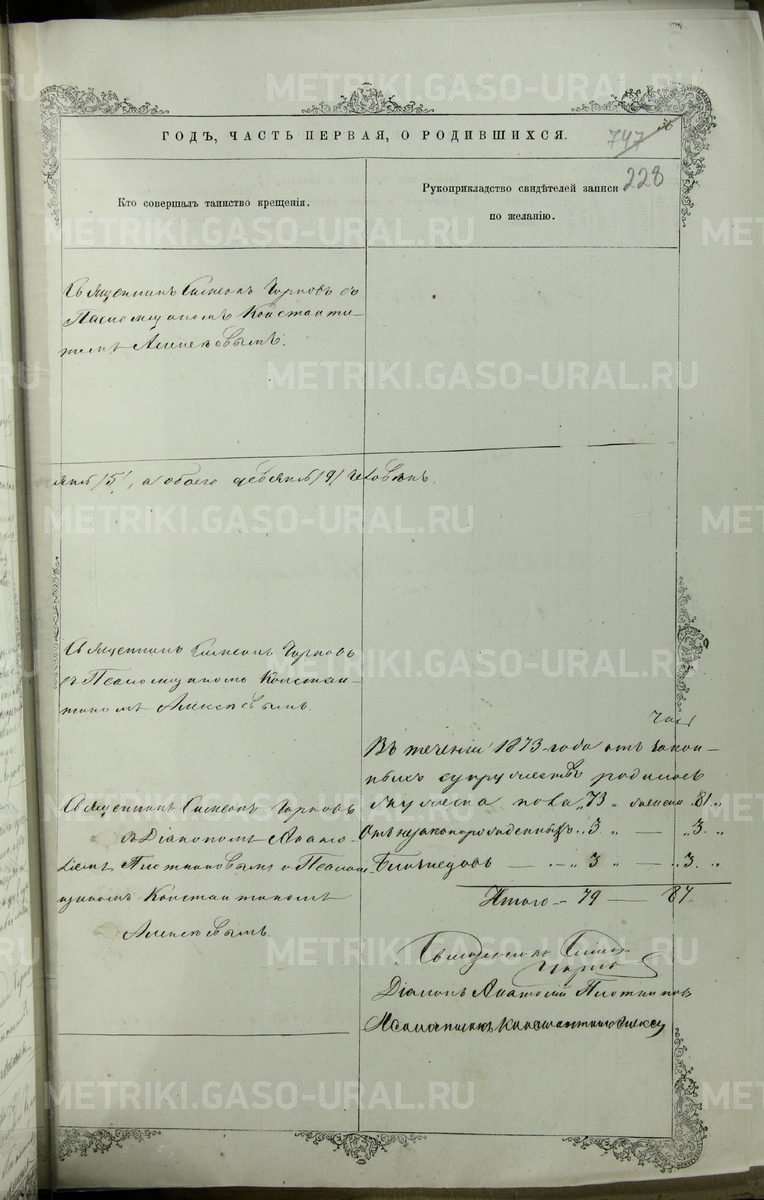 METRIKI.GASO-URAL.RU
ГОДЪ, ЧАСТЬ ПЕРВАЯ, О РОДИВШИХСЯ.
747
228
Кто совершалъ таинство крещенія.
Рукоприкладство свидѣтелей записи
по желанію.
Священникъ Симеонъ Чирковъ съ
Псаломщикомъ Константи-
номъ Алексѣевымъ.
/5/, а обоего девять /9/ человѣкъ.
Священникъ Симеонъ Чирковъ
съ Псаломщикомъ Констан-
тиномъ Алексѣевымъ.
Священникъ Симеонъ Чирковъ
съ Діакономъ Анато-
ліемъ Плотниковымъ и Псалом-
щикомъ Константиномъ
Алексѣевымъ.
Въ теченіи 1873 года отъ закон-
ныхъ супружествъ родилось
мужеска пола „ 73 „ женска 81 „
Отъ незаконнорожденныхъ „ 3 „ — „ 3 „
Близнецовъ — „ 3 „ — „ 3 „
Итого — 79 — 87.
Священникъ Симеонъ
Діаконъ Анатолій Плотниковъ
Псаломщикъ Константинъ Алексѣ